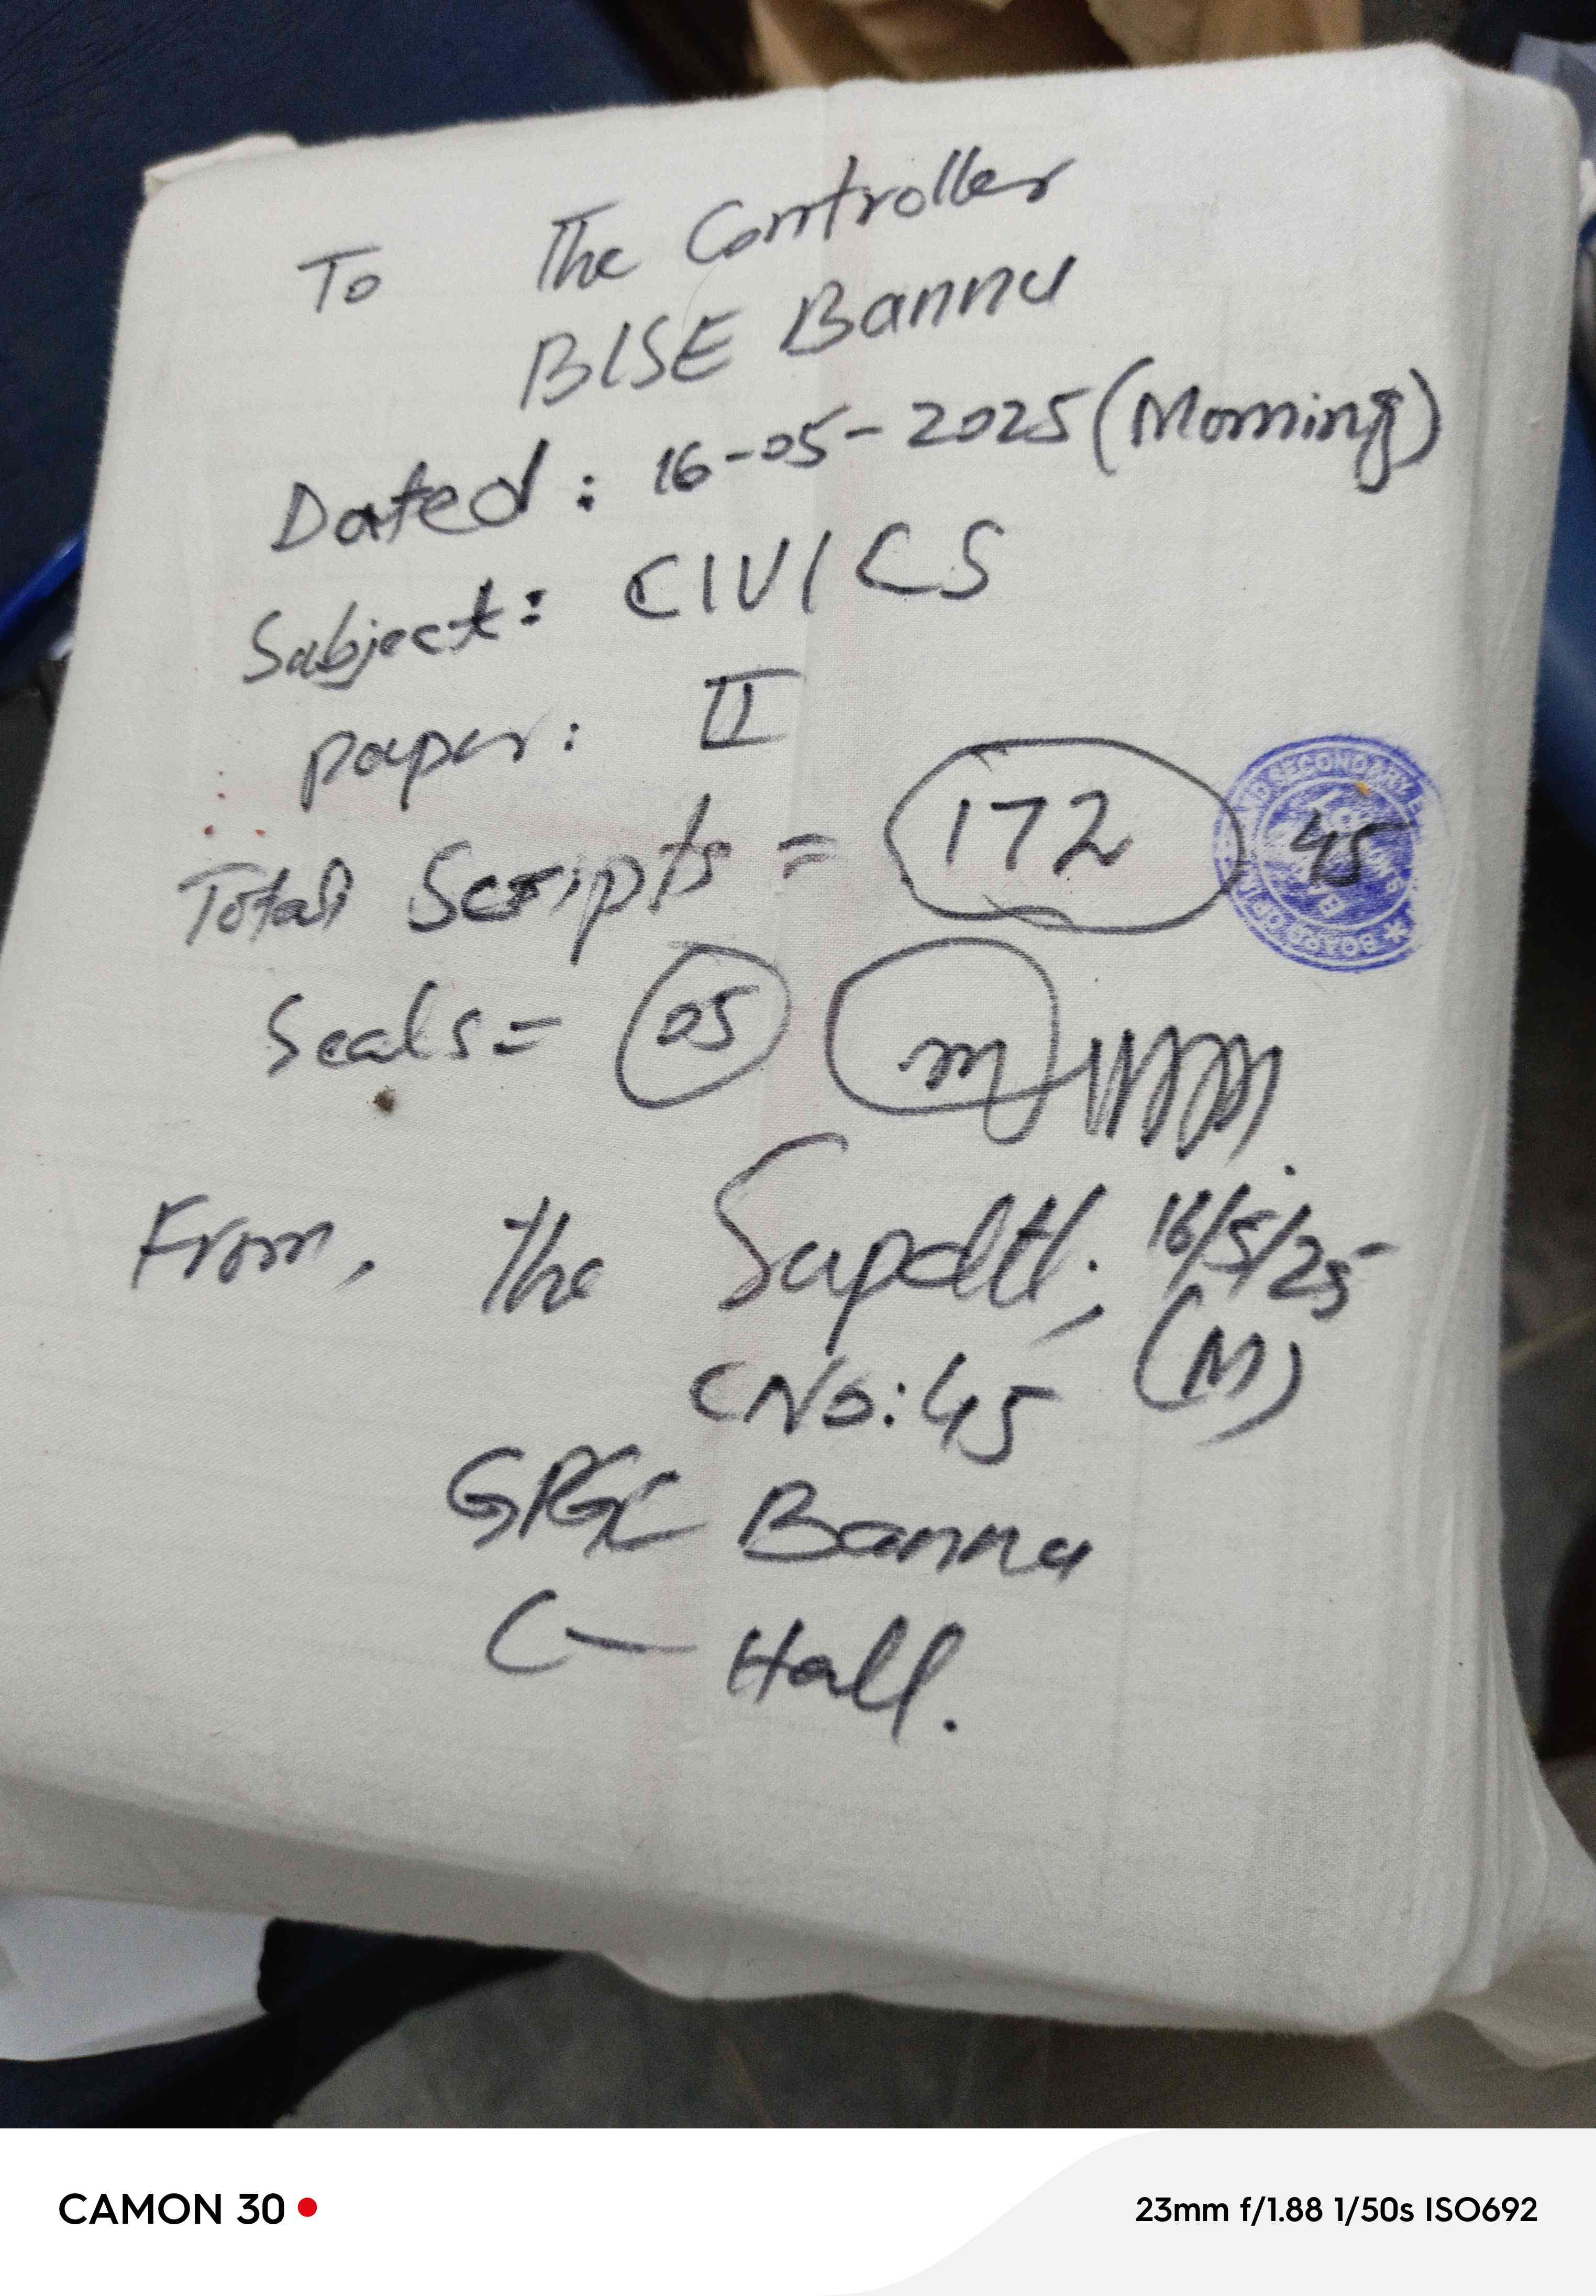 To The Controller
BISE Bannu
Dated: 16-05-2025 (Morning)
Subject: CIVICS
paper: II
Total Scripts = 172 45
Seals = 05 m
From, the Supdtt; 16/5/25
(M)
CNo: 45
GPGC Bannu
C- Hall.
CAMON 30
23mm f/1.88 1/50s ISO692